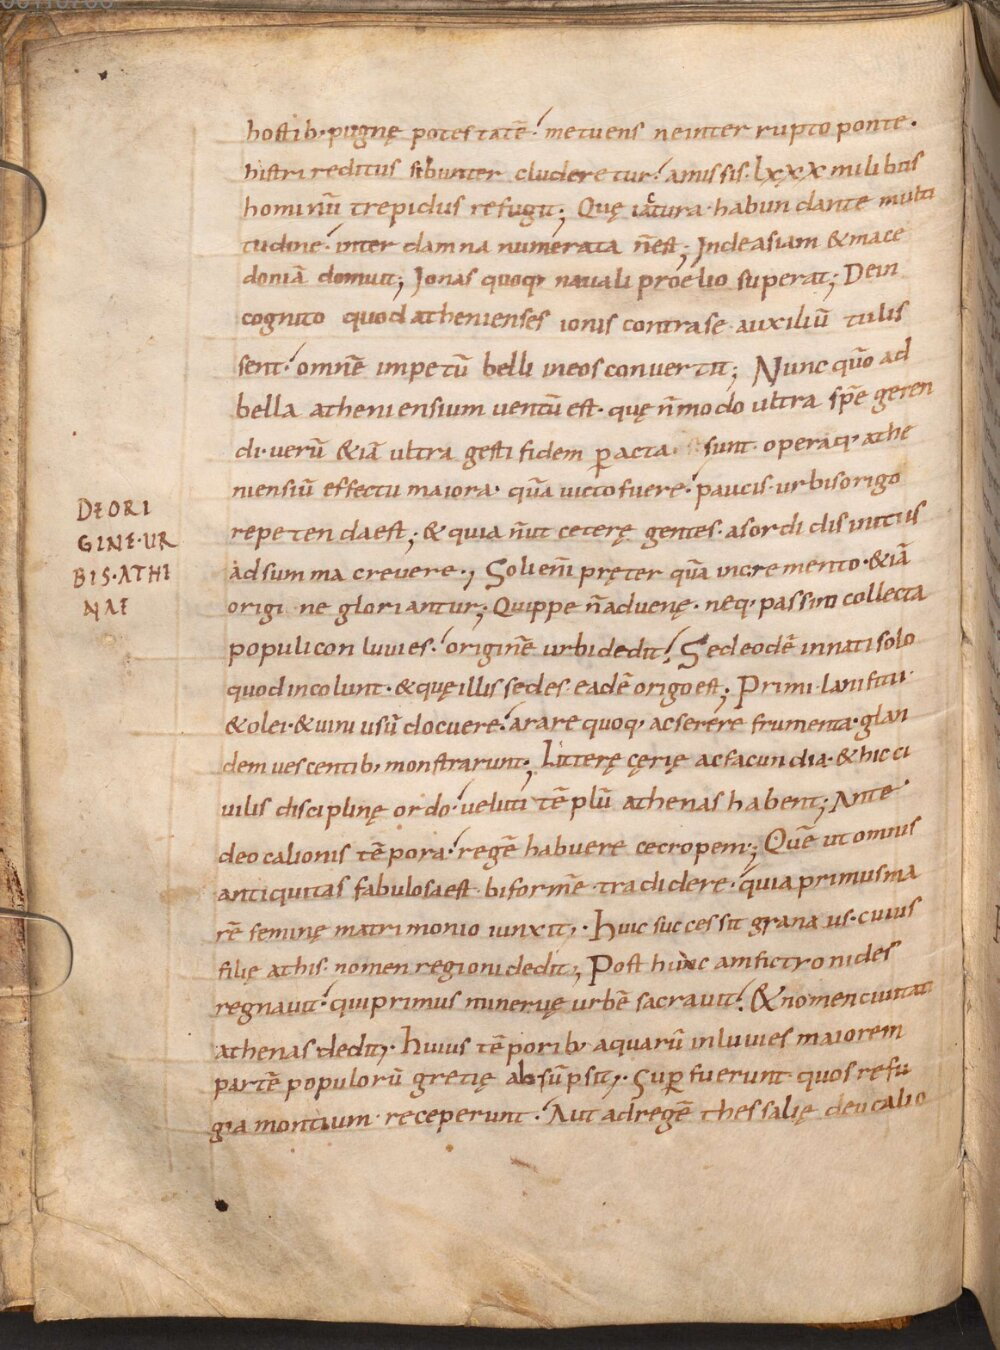 hostib· pugnę potestatē· metuens neinterrupto ponte·
histri reditus sibi intercluderetur· amissis· lxxx milibus
hominū trepidus refugit; Quę iactura· habundante multi
tudine· inter damna numerata n̄est; Inde asiam & mace
doniā domuit; Ionas quoq; nauali proelio superat; Dein
cognito quod athenienses ionis contra se auxiliū tulis
sent· omnē impetū belli in eos convertit; Nunc qūo ad
bella atheniensium ventū est· quę n̄ modo ultra spē geren
di· verū &iā ultra gesti fidem ꝑacta sunt· operaq; athe
niensiū effectu maiora· quā uicto fuere· paucis· urbis origo
repetenda est; & quia n̄ ut ceterę gentes· a sordidis initiis
ad summa crevere·; Soli eni̅ pręter quā incremento· &iā
origine gloriantur; Quippe n̄ aduenę· neq; passim collecta
populi conluuies· originē urbi dedit· Sed eodē innati solo
quod incolunt· & quę illis sedes eadē origo est; Primi lanifitii
& olei· & uini usū docuere· arare quoq; ac serere frumenta· glan
dem vescentib; monstrarunt; Litterę cęrię ac facundia· & hic ci
uilis disciplinę ordo· veluti tēplū athenas habent; Ante
deocalionis tēpora· regē habuere cecropem·; Quē ut omnis
antiquitas fabulosa est biformē tradidere· quia primus ma
rē feminę matrimonio iunxit;· Huic successit granaus· cuius
filię athis· nomen regioni dedit; Post hunc amfictronides
regnauit· qui primus mineruę urbē sacravit· & nomen ciuitati
athenas dedit; Huius tēporib; aquarū inluuies maiorem
partē populorū gretię absūpsit;· Suꝑfuerunt quos refu
gia montium receperunt· Aut ad regē thessalię deucalio
DE ORI
GINE· UR
BIS· ATHI
NAE